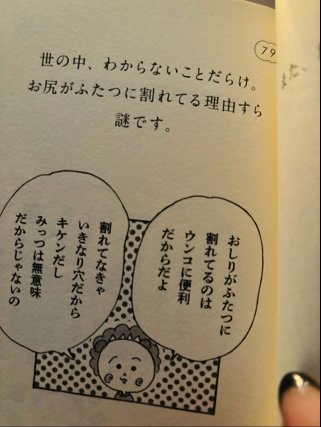 79
世の中、わからないことだらけ。
お尻がふたつに割れてる理由すら
謎です。
おしりがふたつに
割れてるのは
ウンコに便利
だからだよ
割れてなきゃ
いきなり穴だから
キケンだし
みっつは無意味
だからじゃないの